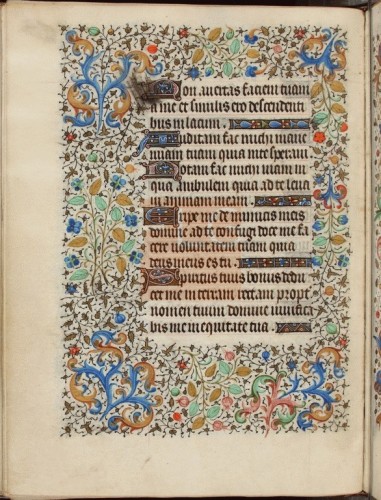 Non avertas faciem tuam
a me et similis ero descendenti
bus in lacum.
Auditam fac michi mane
miam tuam quia in te speravi.
Notam fac michi viam in
qua ambulem quia ad te leva
vi animam meam.
Eripe me de inimicis meis
domine ad te confugi doce me fa
cere voluntatem tuam quia
deus meus es tu.
Spiritus tuus bonus dedu
cet me in terram rectam propt
nomen tuum domine vivifica
bis me in equitate tua.